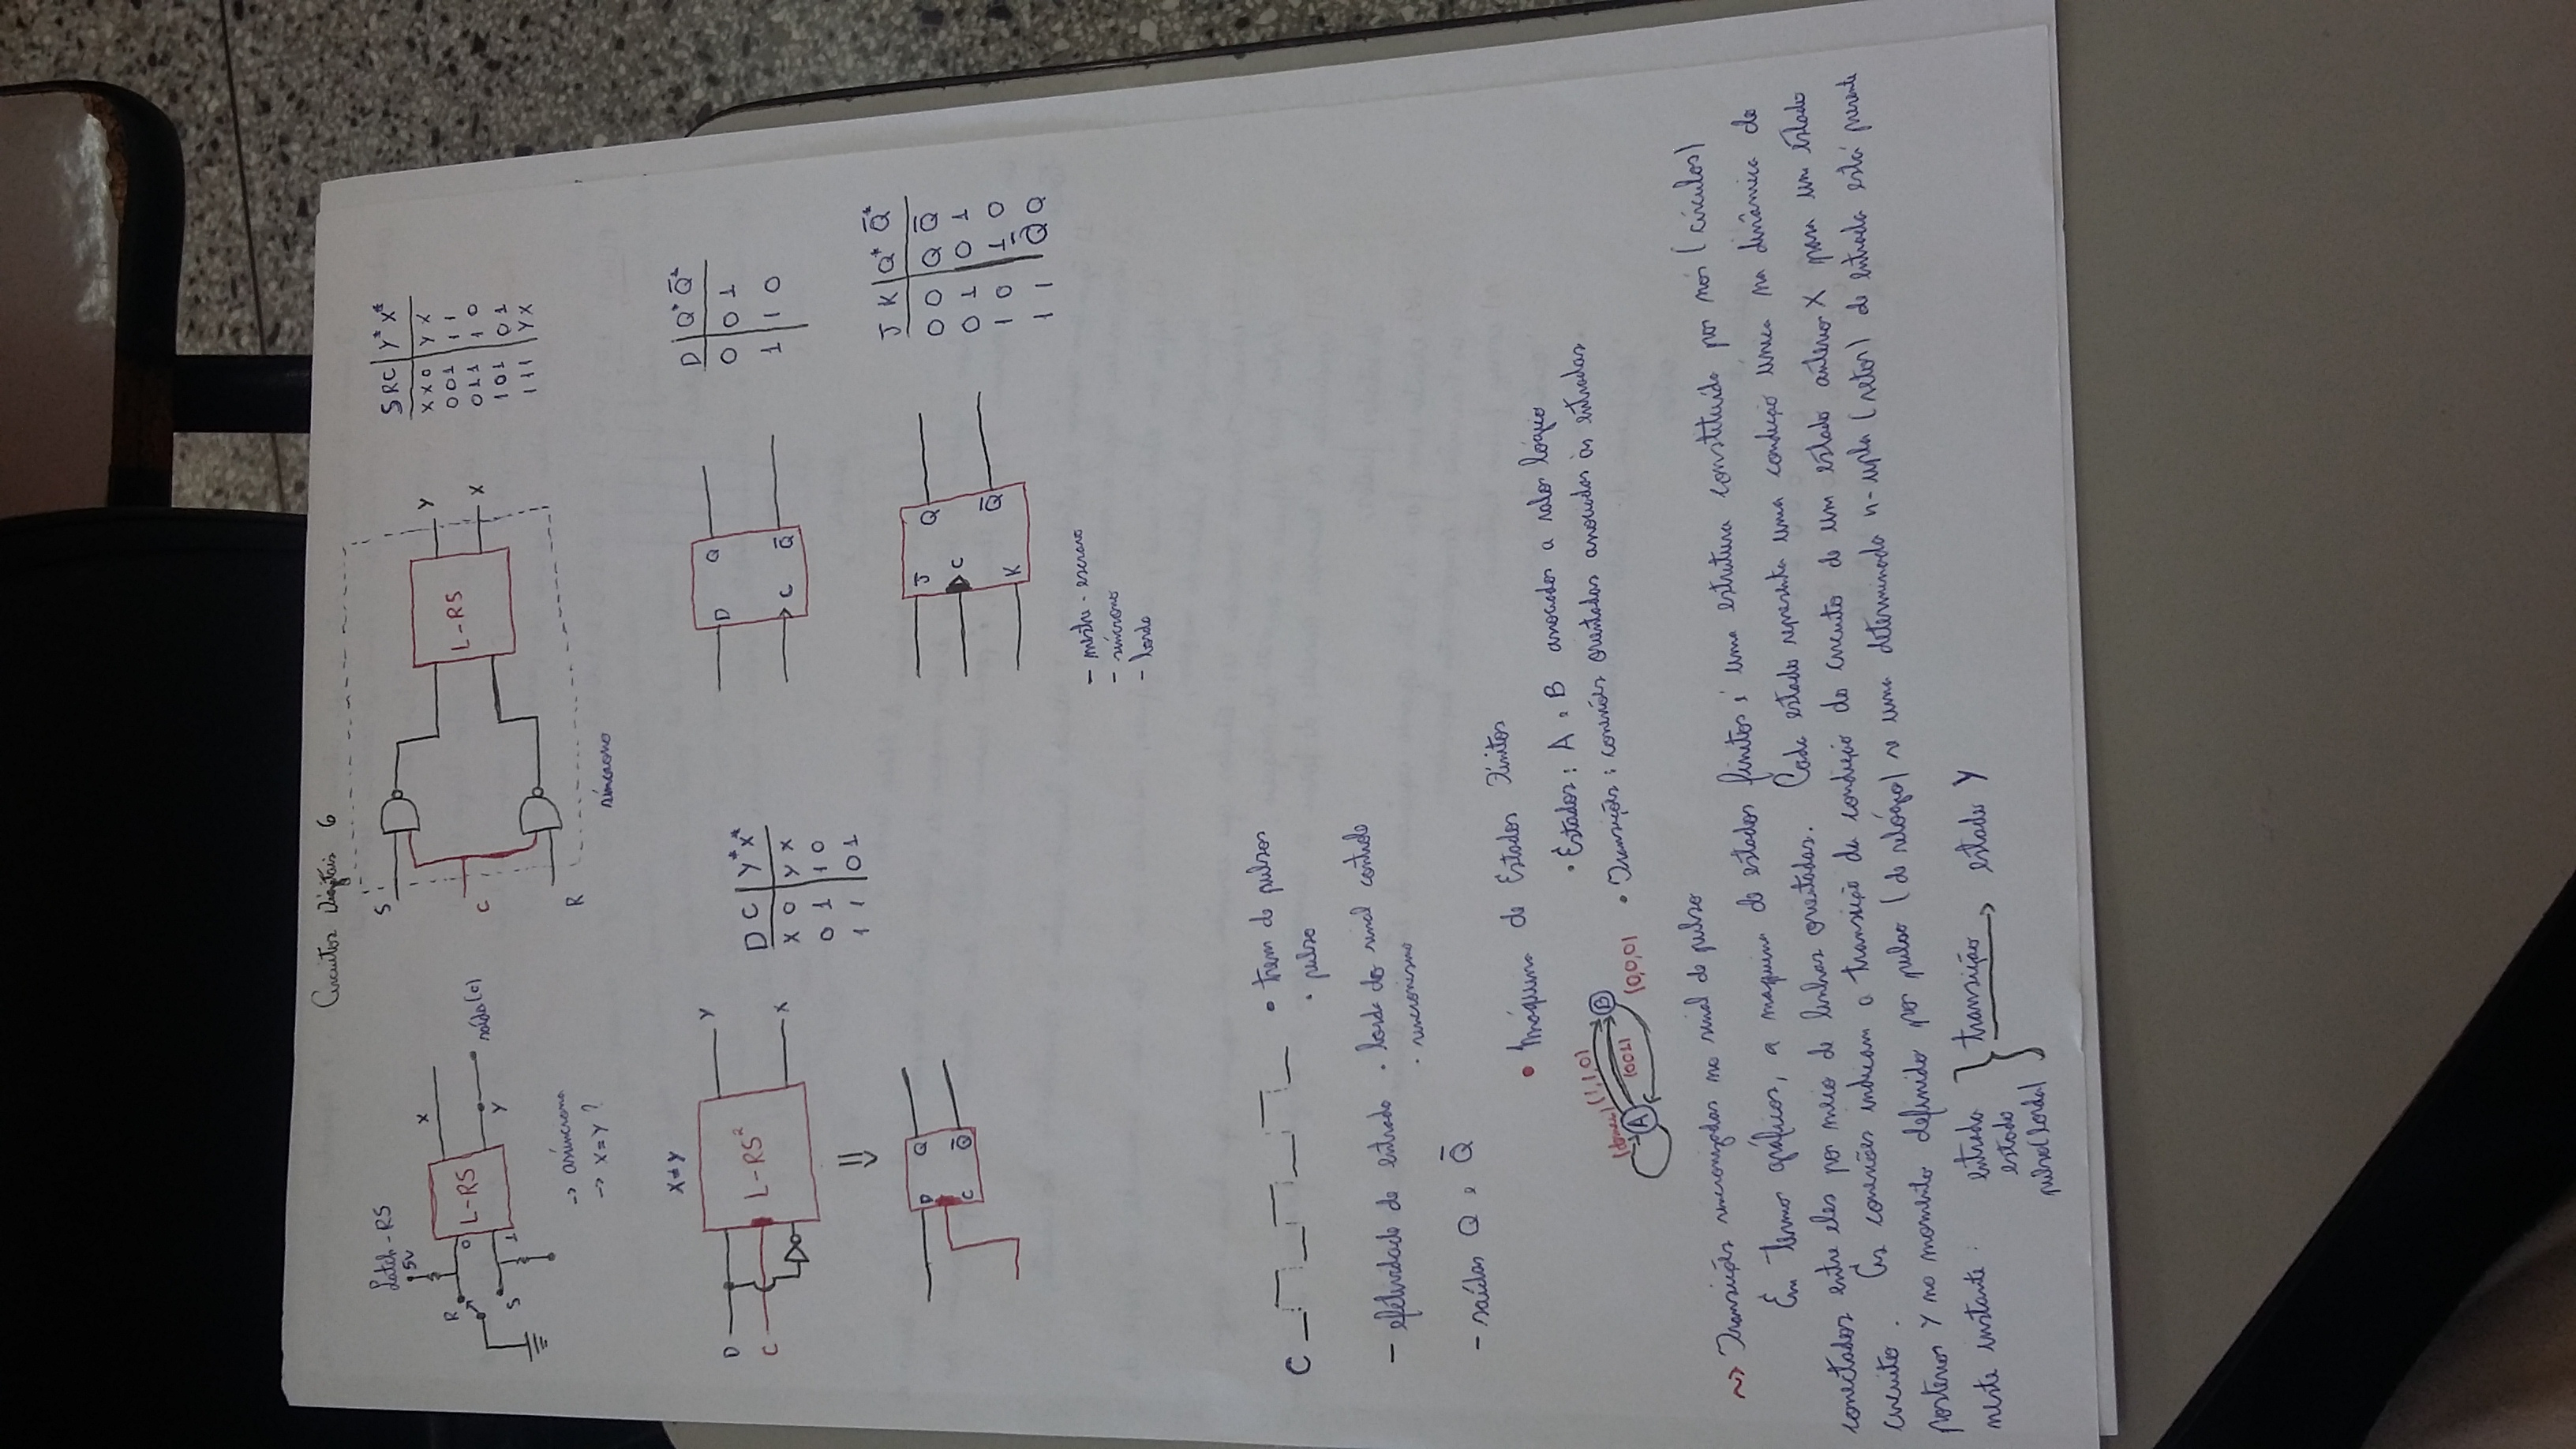 Circuitos Digitais 6
Latch-RS
5V
R
S
0
1
L-RS
X
Y
saída(c)
-> assíncrona
-> X=Y ?
S
C
R
L-RS
Y
X
síncrono
S R C | Y* X*
X X 0 | Y X
0 0 1 | 1 1
0 1 1 | 1 0
1 0 1 | 0 1
1 1 1 | Y X
X≠Y
D
C
L-RS²
Y
X
D C | Y* X*
X 0 | Y X
0 1 | 1 0
1 1 | 0 1
D Q
C Q̄
D Q
C Q̄
D | Q* Q̄*
0 | 0 1
1 | 1 0
J Q
C
K Q̄
J K | Q* Q̄*
0 0 | Q Q̄
0 1 | 0 1
1 0 | 1 0
1 1 | Q̄ Q
- mestre-escravo
- síncrono
- borda
C
• trem de pulsos
• pulso
- efetividade de entrada • borda do sinal controle
• sincronismo
- saídas Q e Q̄
• Máquina de Estados Finitos
• Estados: A e B associados a valor lógico
• Transições: conexões orientadas associadas às entradas
(1,1,0)
(001)
(0,0,0)
A
B
~> Transições sincronizadas no sinal de pulso
Em termos gráficos, a maquina de estados finitos é uma estrutura constituída por nós (círculos)
conectados entre eles por meio de linhas orientadas. Cada estado representa uma condição única na dinâmica do
circuito. As conexões indicam a transição da condição do circuito de um estado anterior X para um estado
posterior Y no momento definido por pulso (de relógio) se uma determinada n-upla (vetor) de entrada está presente
neste instante:
entrada
estado
pulso(borda)
transição
estado Y